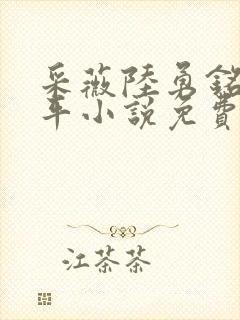 采薇陸勇銘
年小說免費
江茶茶